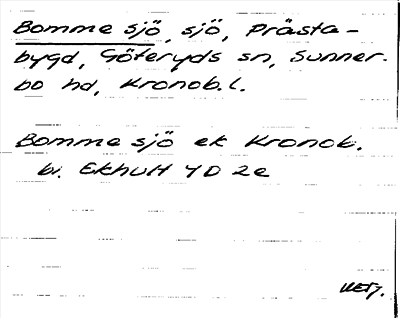 Bomme sjö, sjö, Prästa-
bygd, Göteryds sn, Sunner-
bo hd, Kronob. l.
Bomme sjö ek Kronob.
bl. Ekhult 4D 2e